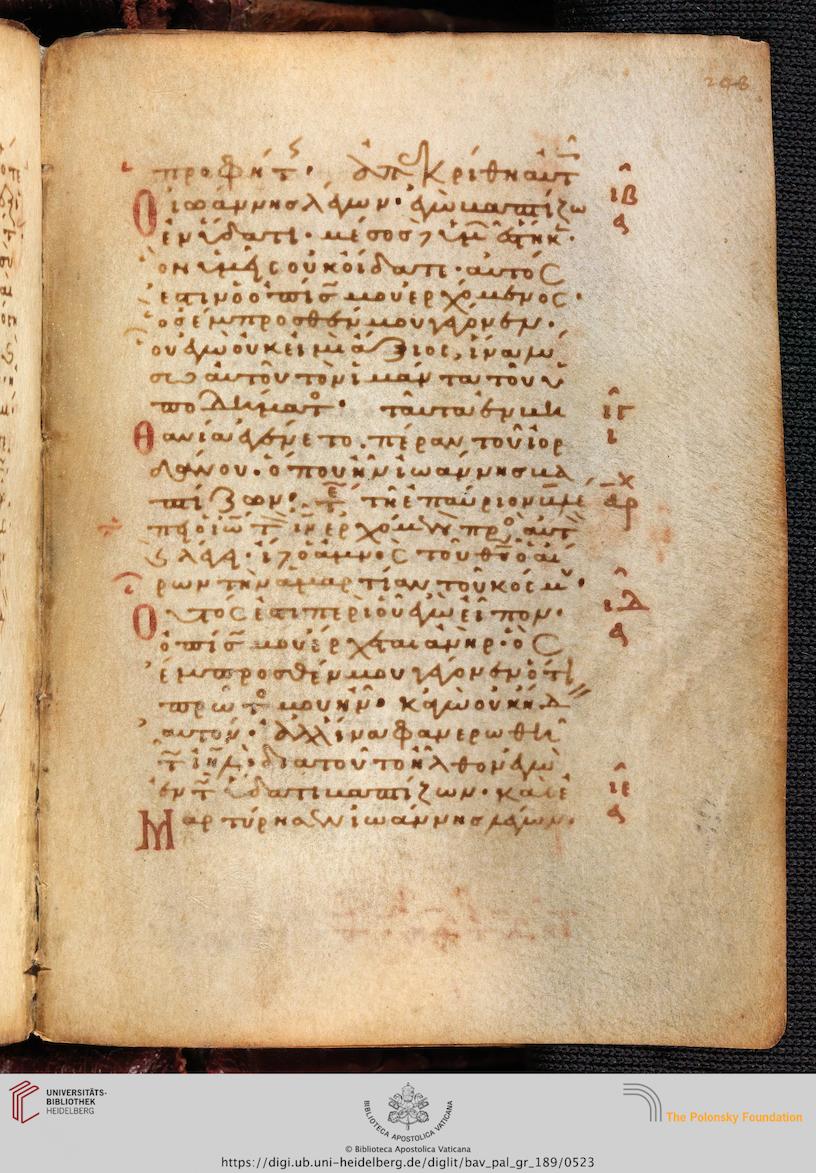 προφήτης· ἀπεκρίθη αὐτ
ὁ ἰωάννης λέγων· ἐγὼ βαπτίζω
ἐν ὕδατι· μέσος
ὃν ὑμεῖς οὐκ οἴδατε· αὐτός
ἐστιν ὁ ὀπίσ μου ἐρχόμενος·
ὃς ἔμπροσθέν μου γέγονεν·
οὗ ἐγὼ οὐκ εἰμὶ ἄξιος, ἵνα λύ
σω αὐτοῦ τὸν ἱμάντα τοῦ ὑ
ποδήματ· ταῦτα ἐν
θανία ἐγένετο· πέραν τοῦ ἰορ
δάνου· ὅπου ἦν ἰωάννης βα
πτίζων· τῇ ἐπαύριον
ὁ ἰω τ ιν ἐρχόμεν πρὸ αὐτ
ὁ ἀμνὸς τοῦ θυ ὁ αἴ
ρων τὴν ἁμαρτίαν τοῦ κόσμου·
οὗτός ἐστι περὶ οὗ ἐγὼ εἶπον·
ὀπίσ μου ἔρχεται ἀνὴρ· ὃς
ἔμπροσθέν μου γέγονεν ὅτι
πρῶτ μου ἦν· κἀγὼ οὐκ ᾔδ
αὐτόν· ἀλλ' ἵνα φανερωθῇ
τ ιηλ· διὰ τοῦτο ἦλθον ἐγὼ
ἐν τ ὕδατι βαπτίζων· καὶ ἐ
Μαρτύρησεν ἰωάννης λέγων·
ιβ
α
ιγ
ι
αρχ
ιδ
α
ιε
α
UNIVERSITÄTS-
BIBLIOTHEK
HEIDELBERG
BIBLIOTECA APOSTOLICA VATICANA
The Polonsky Foundation
© Biblioteca Apostolica Vaticana
https://digi.ub.uni-heidelberg.de/diglit/bav_pal_gr_189/0523